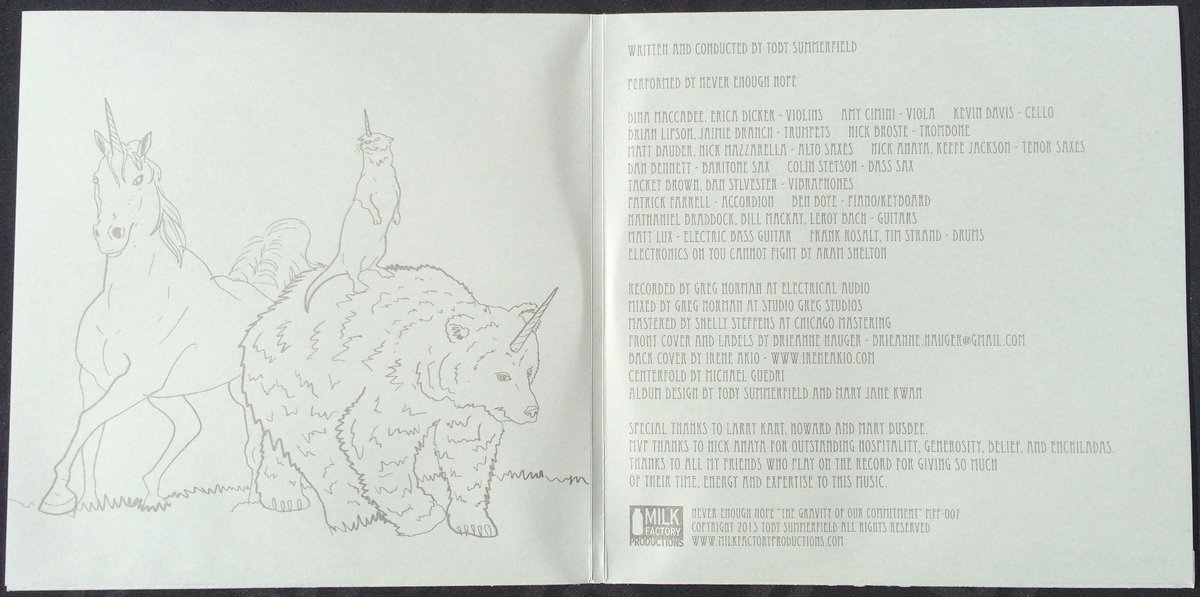 WRITTEN AND CONDUCTED BY TOBY SUMMERFIELD
PERFORMED BY NEVER ENOUGH HOPE
DINA MACCABEE, ERICA DICKER - VIOLINS AMY CIMINI - VIOLA KEVIN DAVIS - CELLO
BRIAN LIPSON, JAIMIE BRANCH - TRUMPETS NICK BROSTE - TROMBONE
MATT BAUDER, NICK MAZZARELLA - ALTO SAXES NICK ANAYA, KEEFE JACKSON - TENOR SAXES
DAN BENNETT - BARITONE SAX COLIN STETSON - BASS SAX
TACKET BROWN, DAN SYLVESTER - VIBRAPHONES
PATRICK FARRELL - ACCORDION BEN BOYE - PIANO/KEYBOARD
NATHANIEL BRADDOCK, BILL MACKAY, LEROY BACH - GUITARS
MATT LUX - ELECTRIC BASS GUITAR FRANK ROSALY, TIM STRAND - DRUMS
ELECTRONICS ON YOU CANNOT FIGHT BY ARAM SHELTON
RECORDED BY GREG NORMAN AT ELECTRICAL AUDIO
MIXED BY GREG NORMAN AT STUDIO GREG STUDIOS
MASTERED BY SHELLY STEFFENS AT CHICAGO MASTERING
FRONT COVER AND LABELS BY BRIEANNE HAUGER - BRIEANNE.HAUGER@GMAIL.COM
BACK COVER BY IRENE AKIO - WWW.IRENEAKIO.COM
CENTERFOLD BY MICHAEL GUEDRI
ALBUM DESIGN BY TOBY SUMMERFIELD AND MARY JANE KWAN
SPECIAL THANKS TO LARRY KART, HOWARD AND MARY BUSBEE.
MVP THANKS TO NICK ANAYA FOR OUTSTANDING HOSPITALITY, GENEROSITY, BELIEF, AND ENCHILADAS.
THANKS TO ALL MY FRIENDS WHO PLAY ON THE RECORD FOR GIVING SO MUCH
OF THEIR TIME, ENERGY AND EXPERTISE TO THIS MUSIC.
MILK
FACTORY
PRODUCTIONS
NEVER ENOUGH HOPE "THE GRAVITY OF OUR COMMITMENT" MFP-007
COPYRIGHT 2015 TOBY SUMMERFIELD ALL RIGHTS RESERVED
WWW.MILKFACTORYPRODUCTIONS.COM